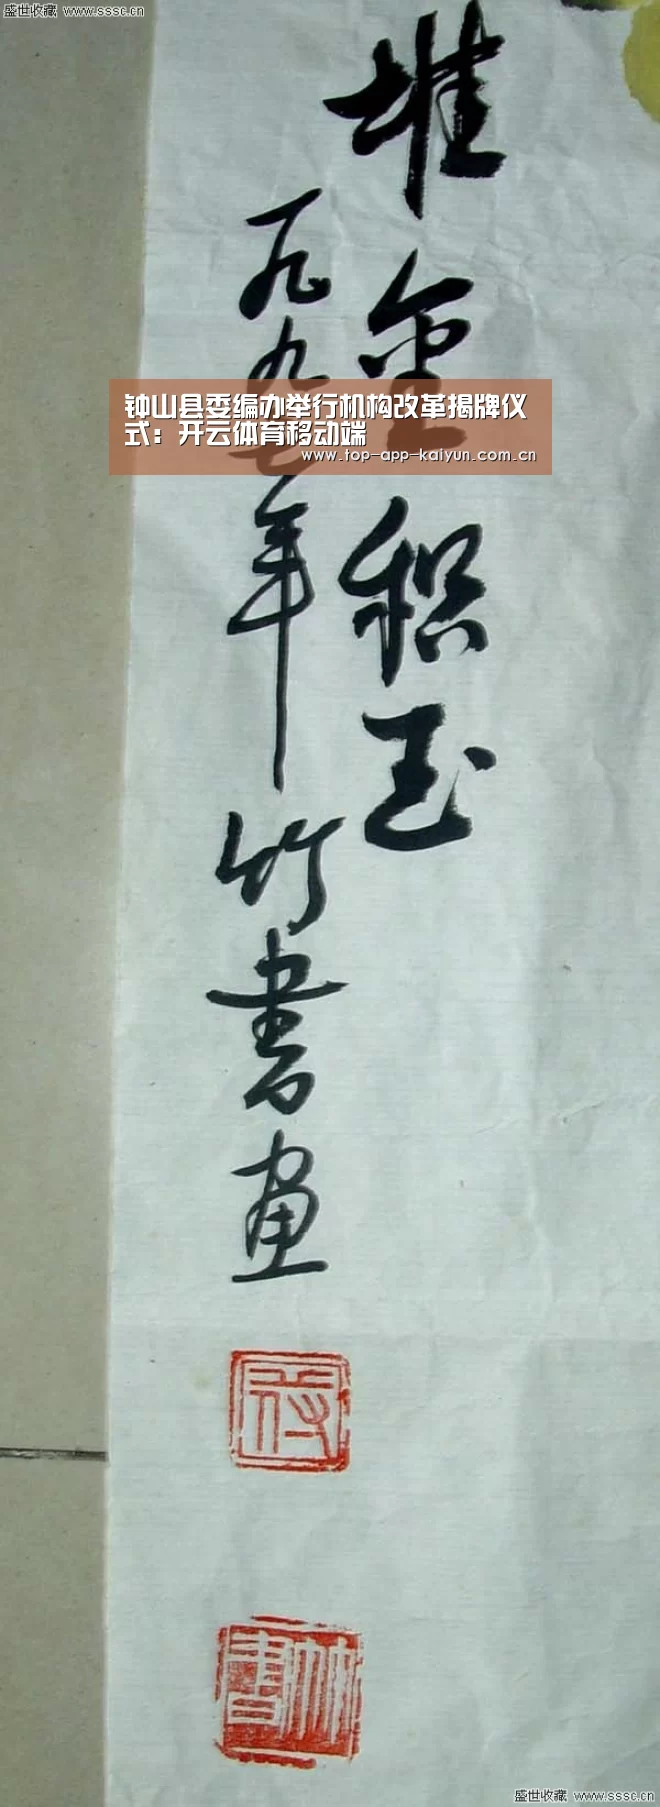 盛世收藏 www.sssc.cn
堆金积玉
一九九七年竹書画
钟山县委编办举行机构改革揭牌仪
式：开云体育移动端
www.top-app-kaiyun.com.cn
竹書
盛世收藏 www.sssc.cn